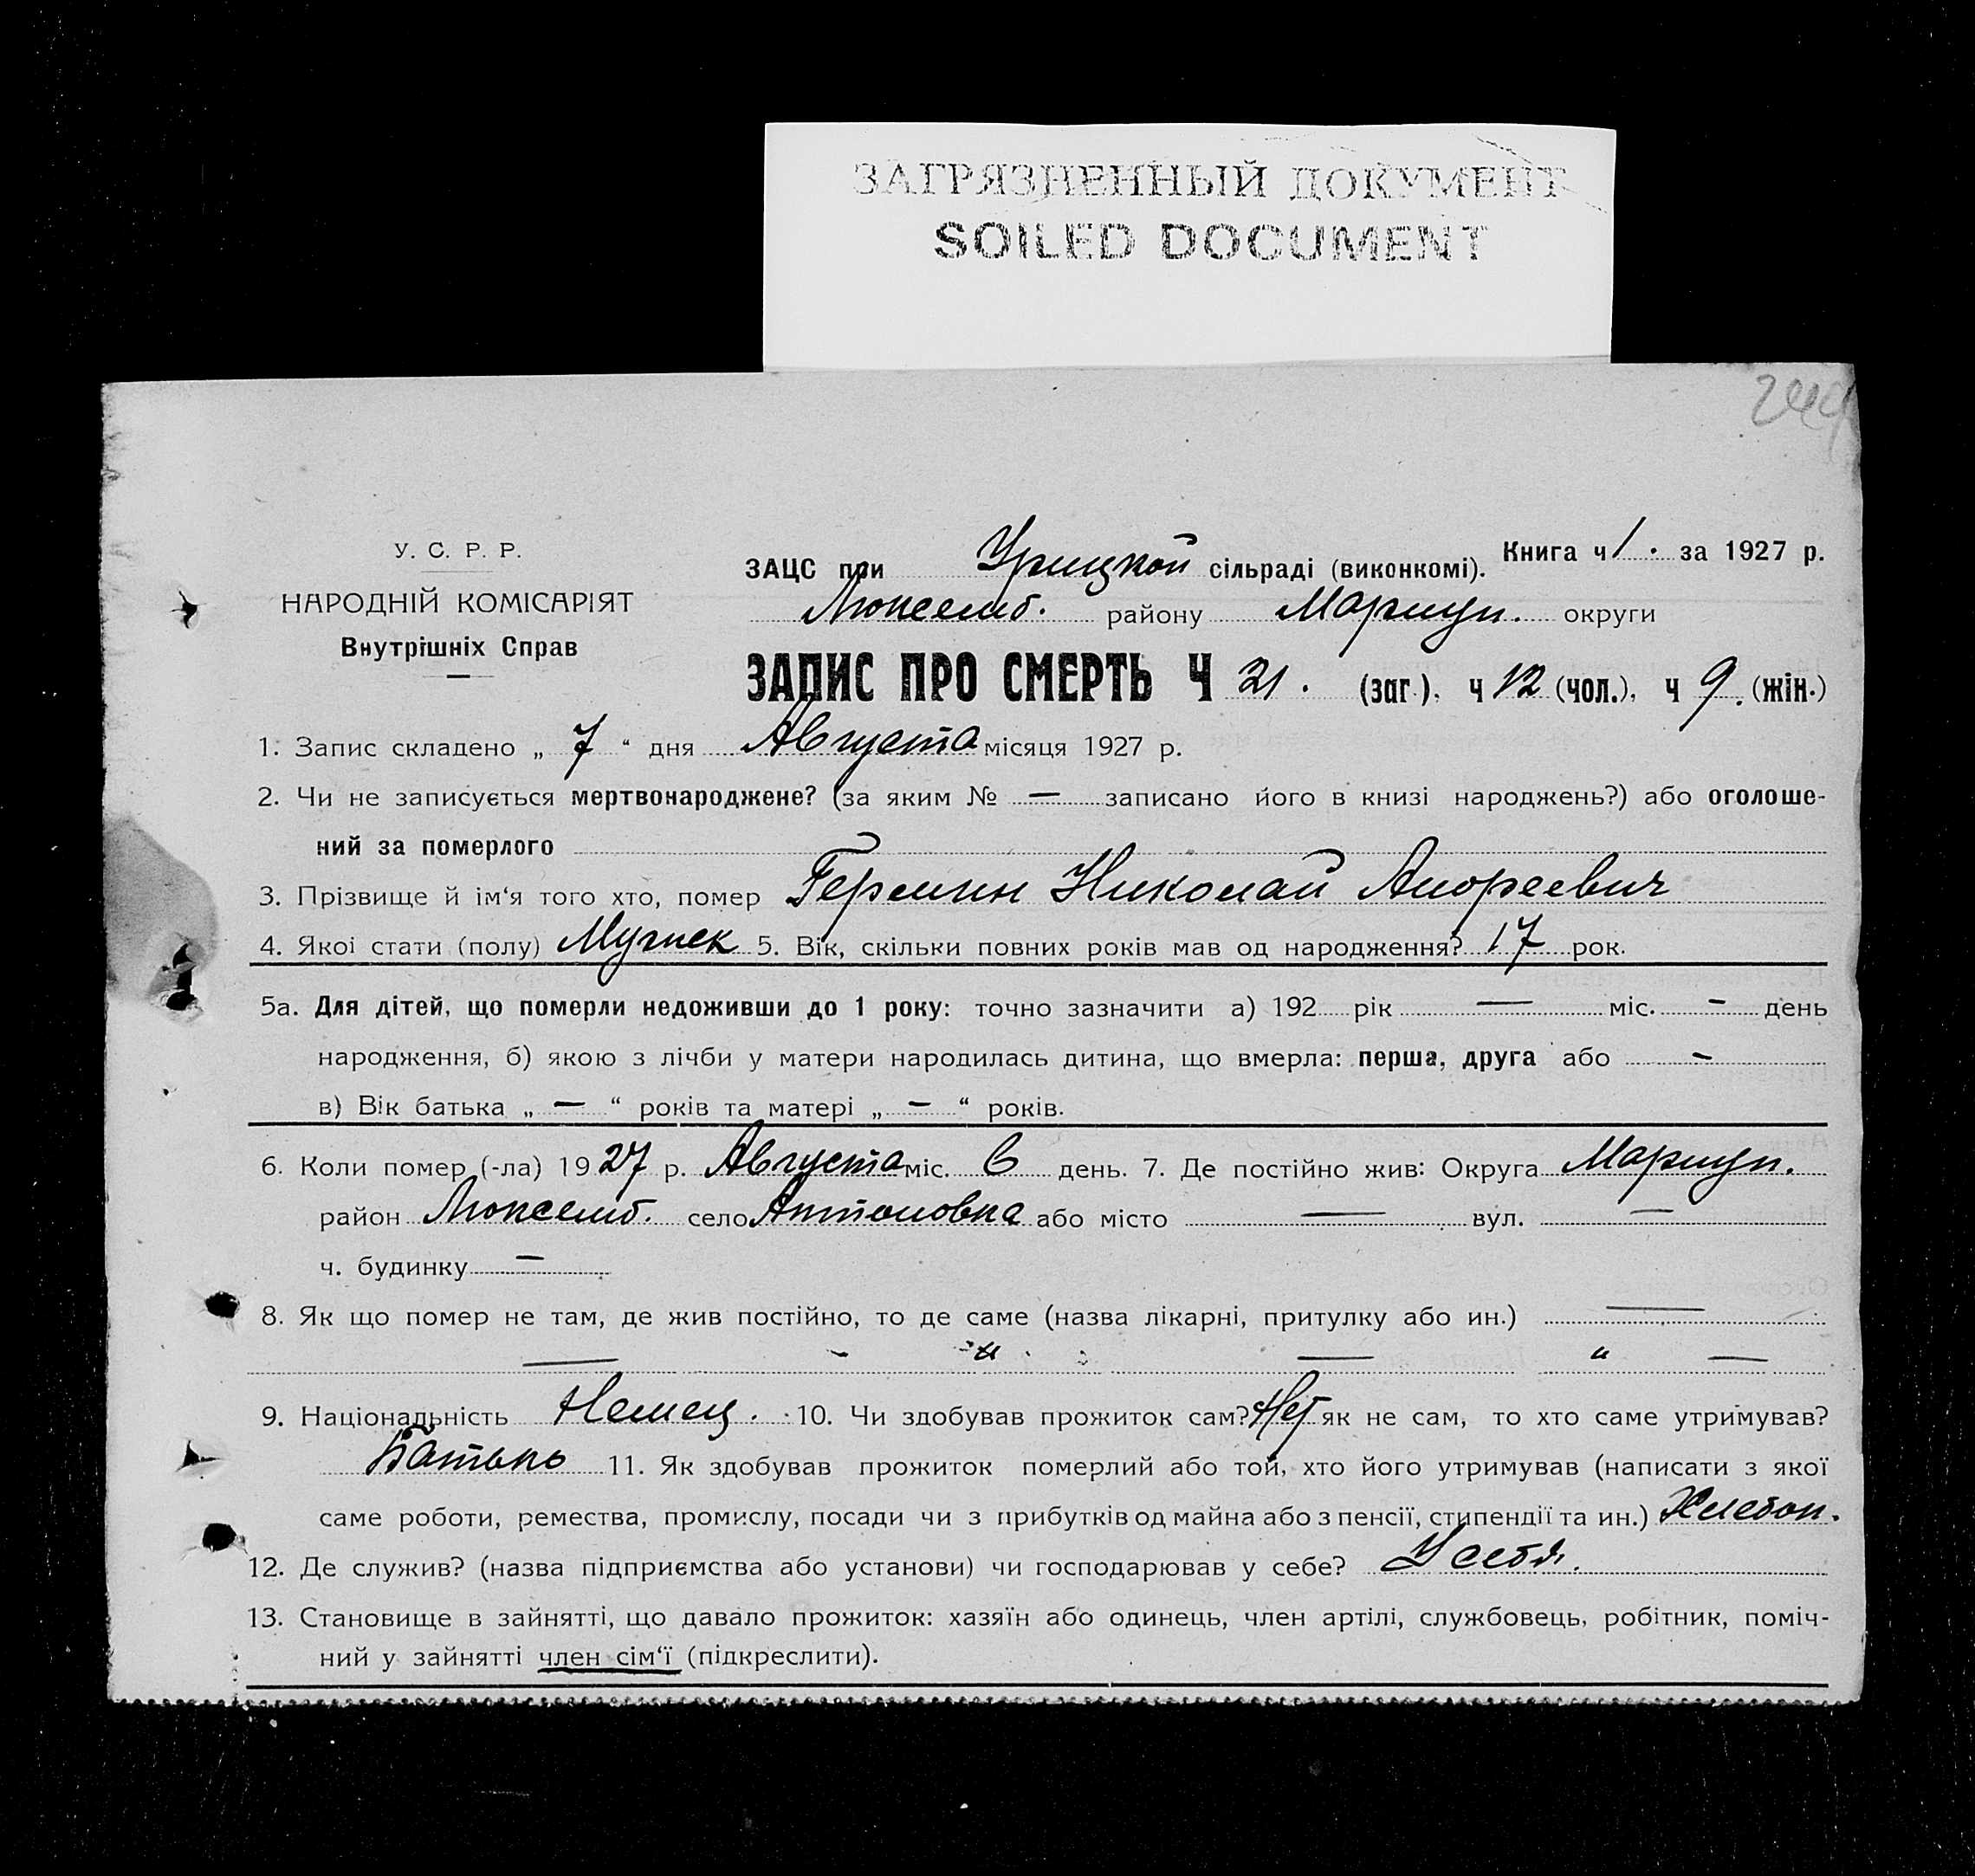 ЗАГРЯЗНЕННЫЙ ДОКУМЕНТ
SOILED DOCUMENT
У. С. Р. Р.
НАРОДНІЙ КОМІСАРІЯТ
Внутрішніх Справ
ЗАЦС при Урицкой сільраді (виконкомі). Книга ч 1. за 1927 р.
Люксемб. району Мариуп. округи
ЗАПИС ПРО СМЕРТЬ Ч 21. (заг.), ч 12 (чол.), ч 9. (жін.)
1. Запис складено „ 7 “ дня Августа місяця 1927 р.
2. Чи не записується мертвонароджене? (за яким № — записано його в книзі народжень?) або оголоше-
ний за померлого
3. Прізвище й ім‘я того хто, помер Германн Николай Андреевич
4. Якоі стати (полу) Мужск 5. Вік, скільки повних років мав од народження? 17 рок.
5а. Для дітей, що померли недоживши до 1 року: точно зазначити а) 192 рік — міс. – день
народження, б) якою з лічби у матери народилась дитина, що вмерла: перша, друга або –
в) Вік батька „ — “ років та матері „ – “ років.
6. Коли помер (-ла) 1927 р. Августа міс. 6 день. 7. Де постійно жив: Округа Мариуп.
район Люксемб. село Антоновка або місто — вул. —
ч. будинку —
8. Як що помер не там, де жив постійно, то де саме (назва лікарні, притулку або ин.) —
— - " — " —
9. Національність Немец. 10. Чи здобував прожиток сам? Нет як не сам, то хто саме утримував?
Батько 11. Як здобував прожиток померлий або той, хто його утримував (написати з якої
саме роботи, ремества, промислу, посади чи з прибутків од майна або з пенсії, стипендії та ин.) Хлебоп.
12. Де служив? (назва підприємства або установи) чи господарював у себе? У себя.
13. Становище в зайнятті, що давало прожиток: хазяїн або одинець, член артілі, службовець, робітник, поміч-
ний у зайнятті член сім‘ї (підкреслити).